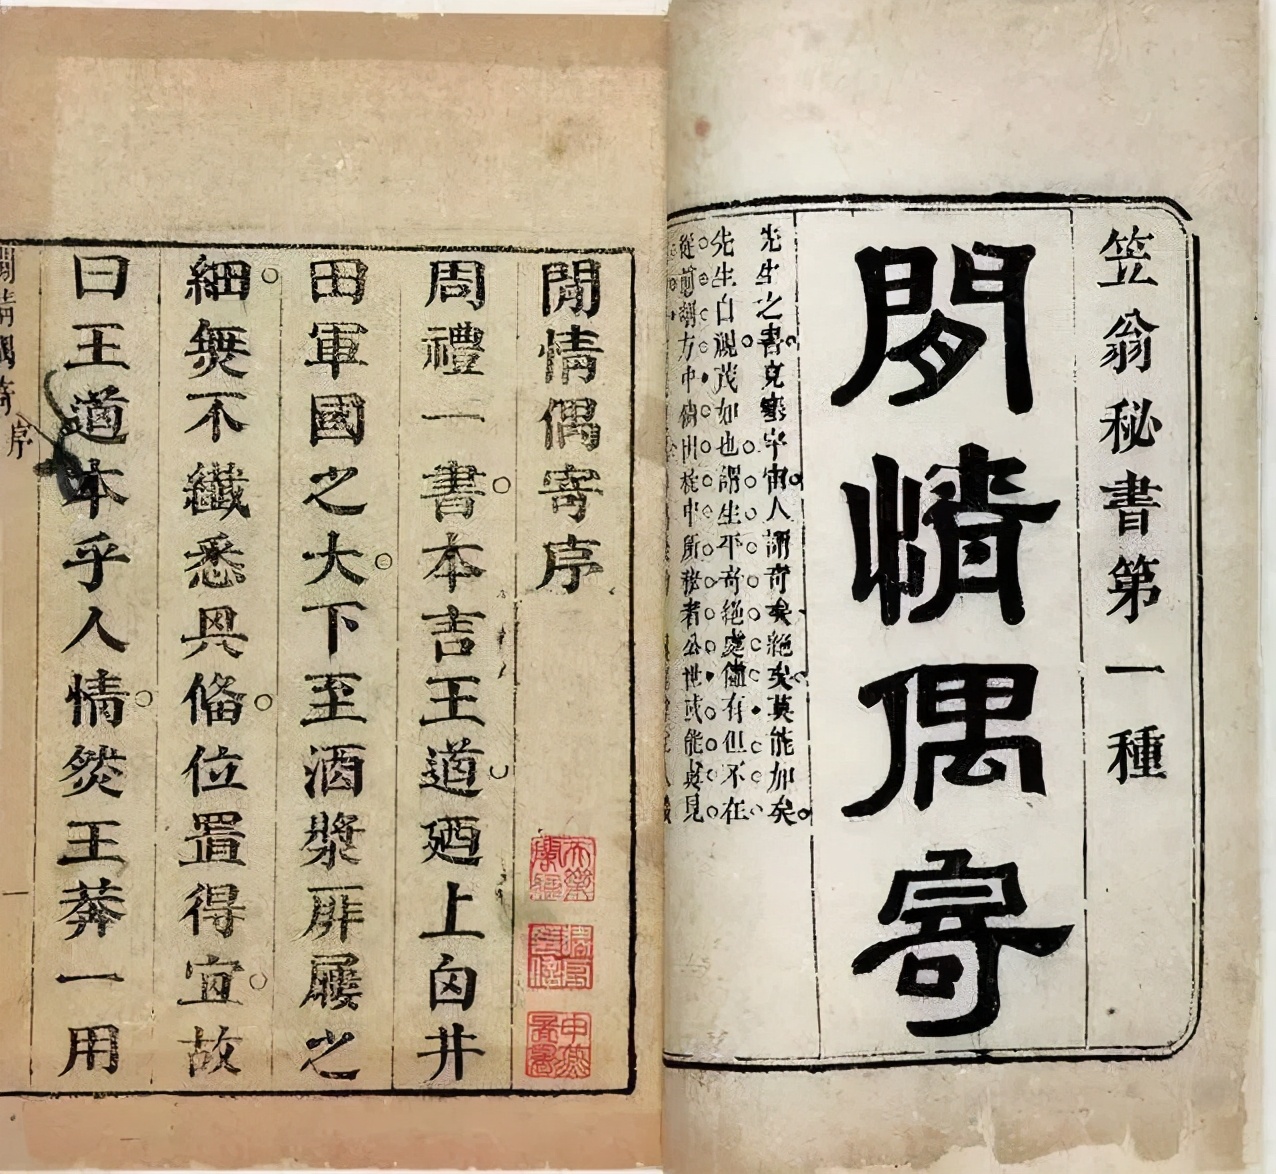 笠翁秘書第一種
閒情偶寄
先生之書充塞宇宙人謂奇矣絕矣莫能加矣
先生自視茂如也謂生平奇絕處儘有但不在
從前中倘出枕中所秘者公世或能見
閒情偶寄序
周禮一書本言王道廼上自井
田軍國之大下至酒漿屝屨之
細無不纖悉具備位置得宜故
曰王道本乎人情然王莽一用
閒情偶寄 序 一